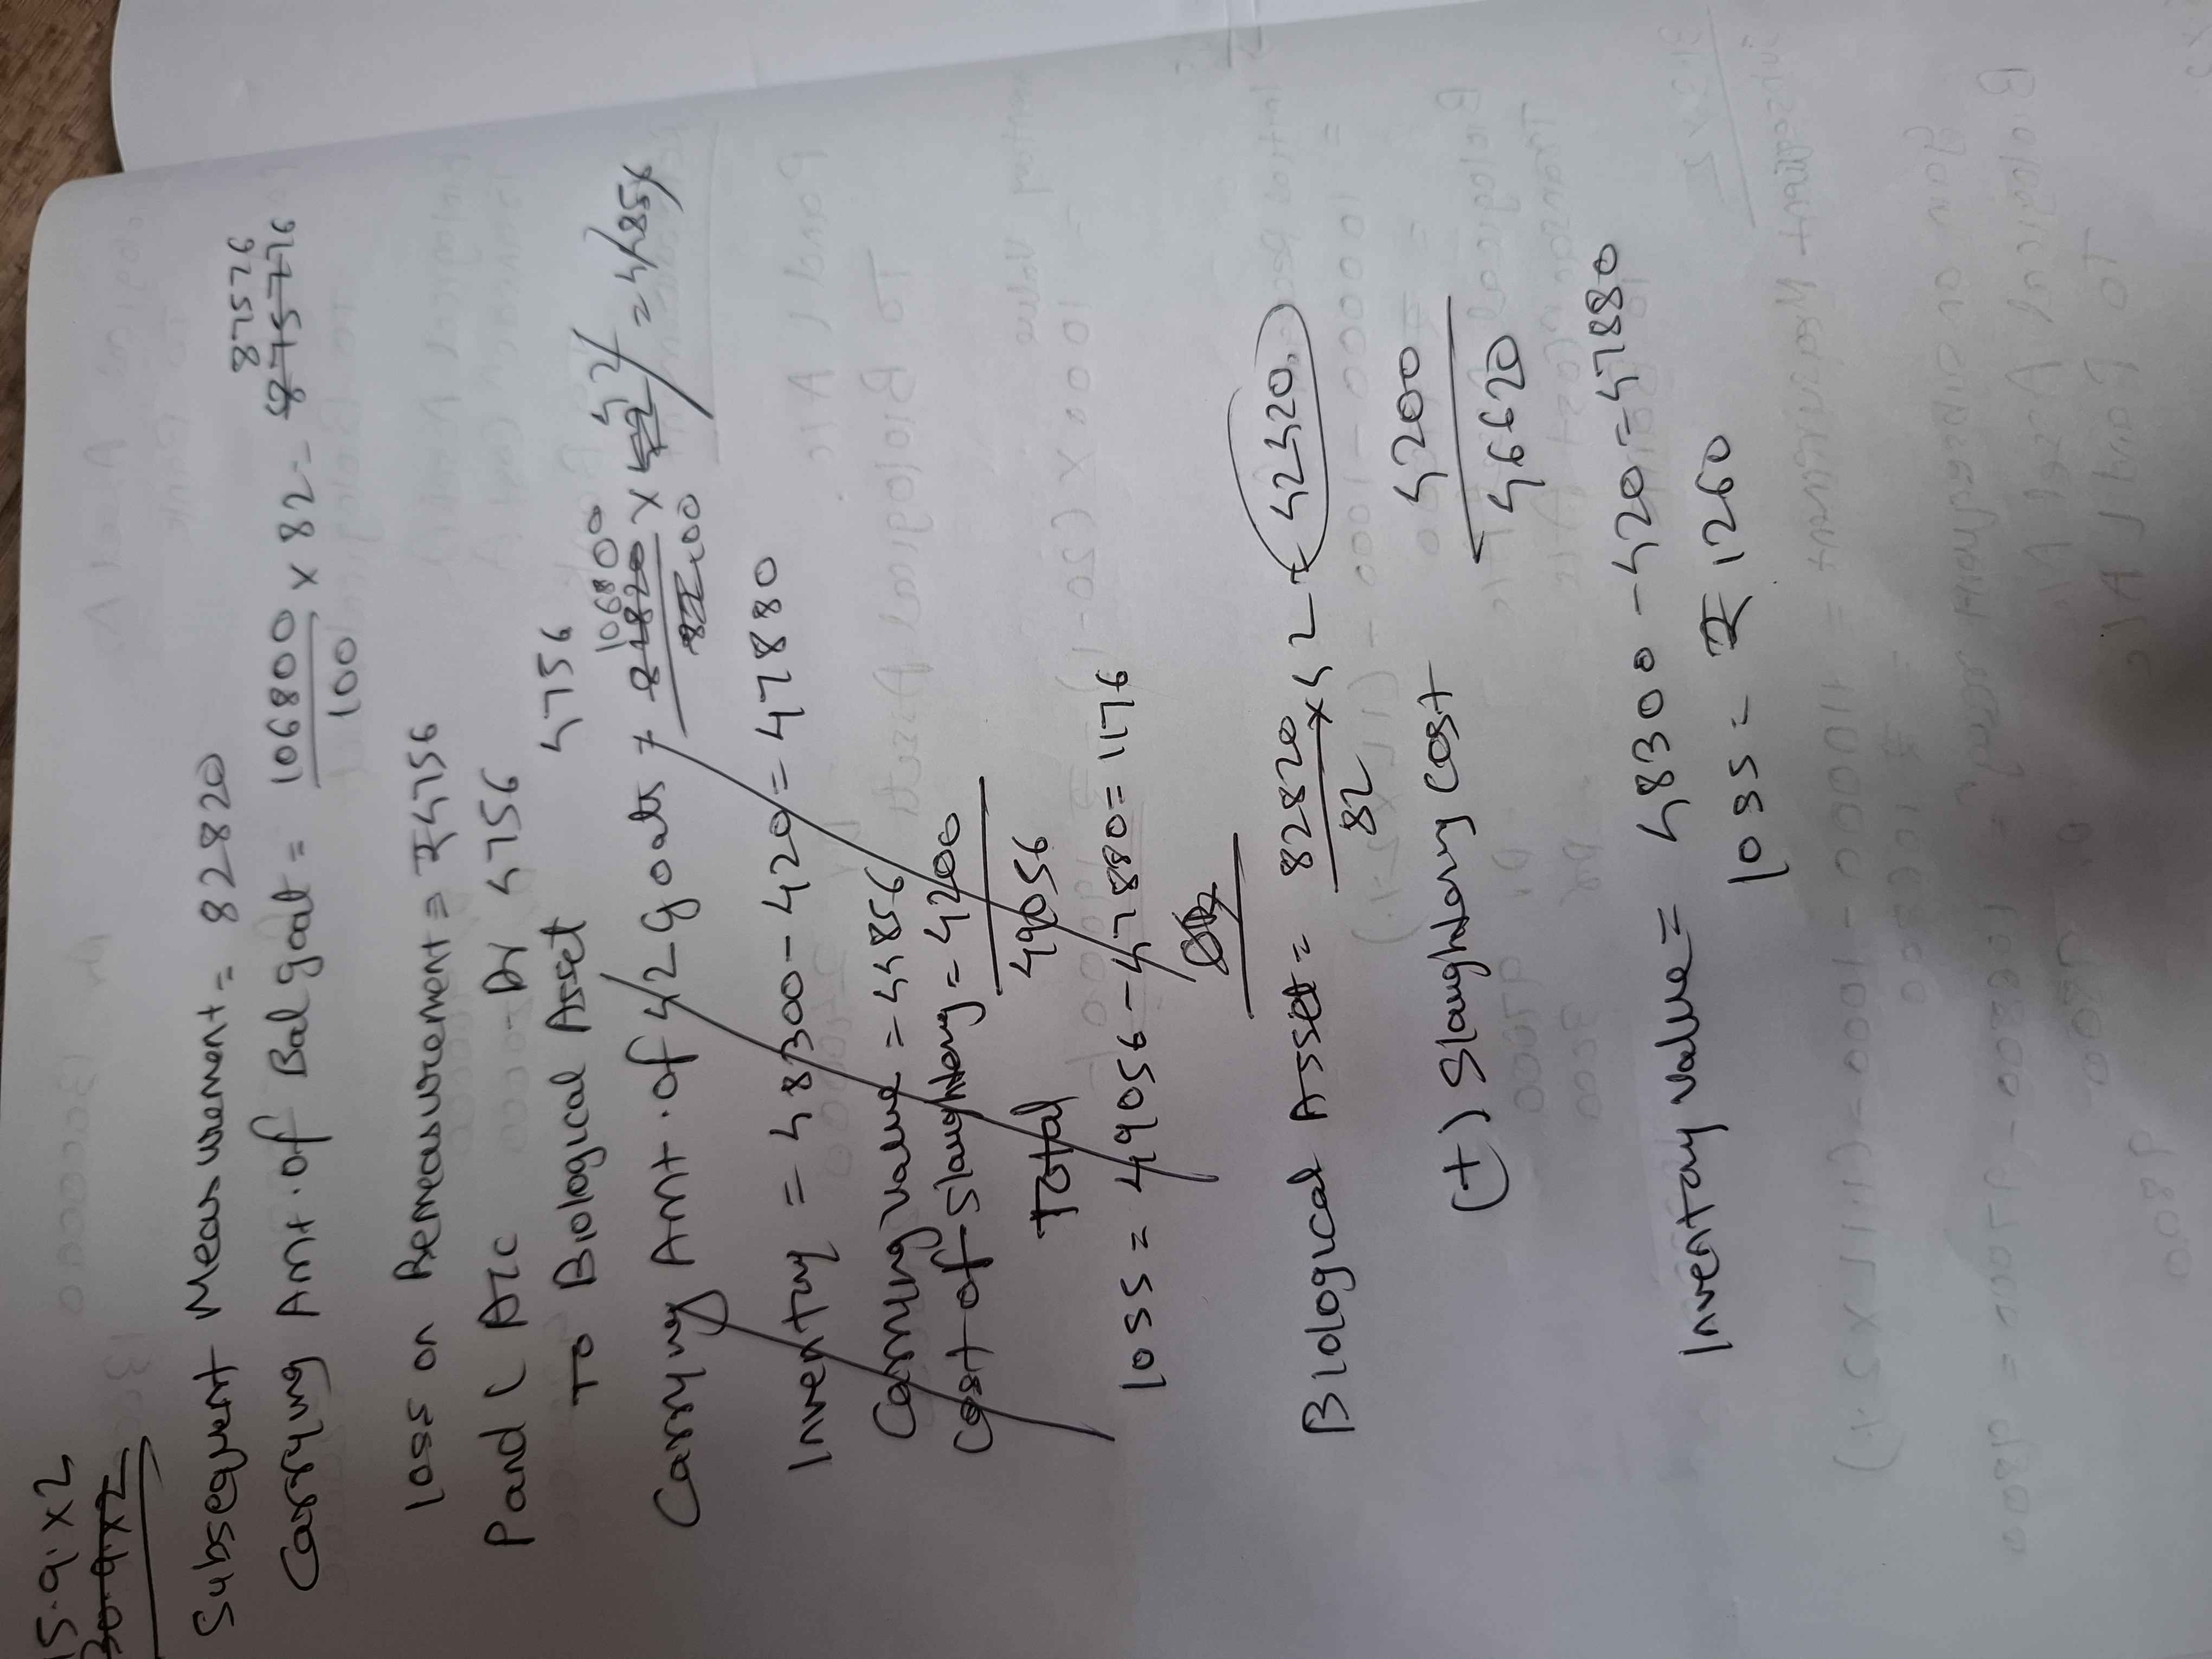 15.9.x2
30.9.x2
Subsequent Measurement = 82820
87576
Carrying Amt. of Bal goat = 106800 x 82 = 8757716
100
loss on Remeasurement = ₹4756
P and L A/c Dr 4756
To Biological Asset 4756
106800 42
Carrying Amt. of 42 goats = 82820 x 42 = 44856
82 100
Inventory = 48300 - 420 = 47880
Carrying value = 44856
Cost of Slaughtery = 4200
Total 49056
loss = 49056 - 47880 = 1176
Biological Asset = 82820 x 42 = 42420.
82
(+) Slaughtery Cost 4200
46620
Inventory value = 48300 - 420 = 47880
loss = ₹ 1260